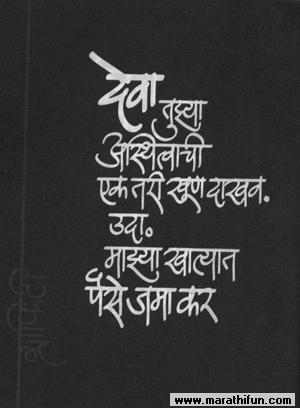 देवा
तुझ्या
अस्थित्वाची
एक तरी खुण दाखव.
उदा.
माझ्या खात्यात
पैसे जमा कर
ग्राफिटी
www.marathifun.com